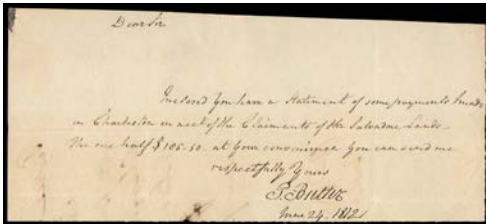 Dear Sir
Inclosed You have a Statement of some payments I made
in Charleston on acct of the Claiments of the Salvadore Lands—
the one half $106.50. at Your convenience You can send me
respectfully Yours
P. Butler
June 24, 1812